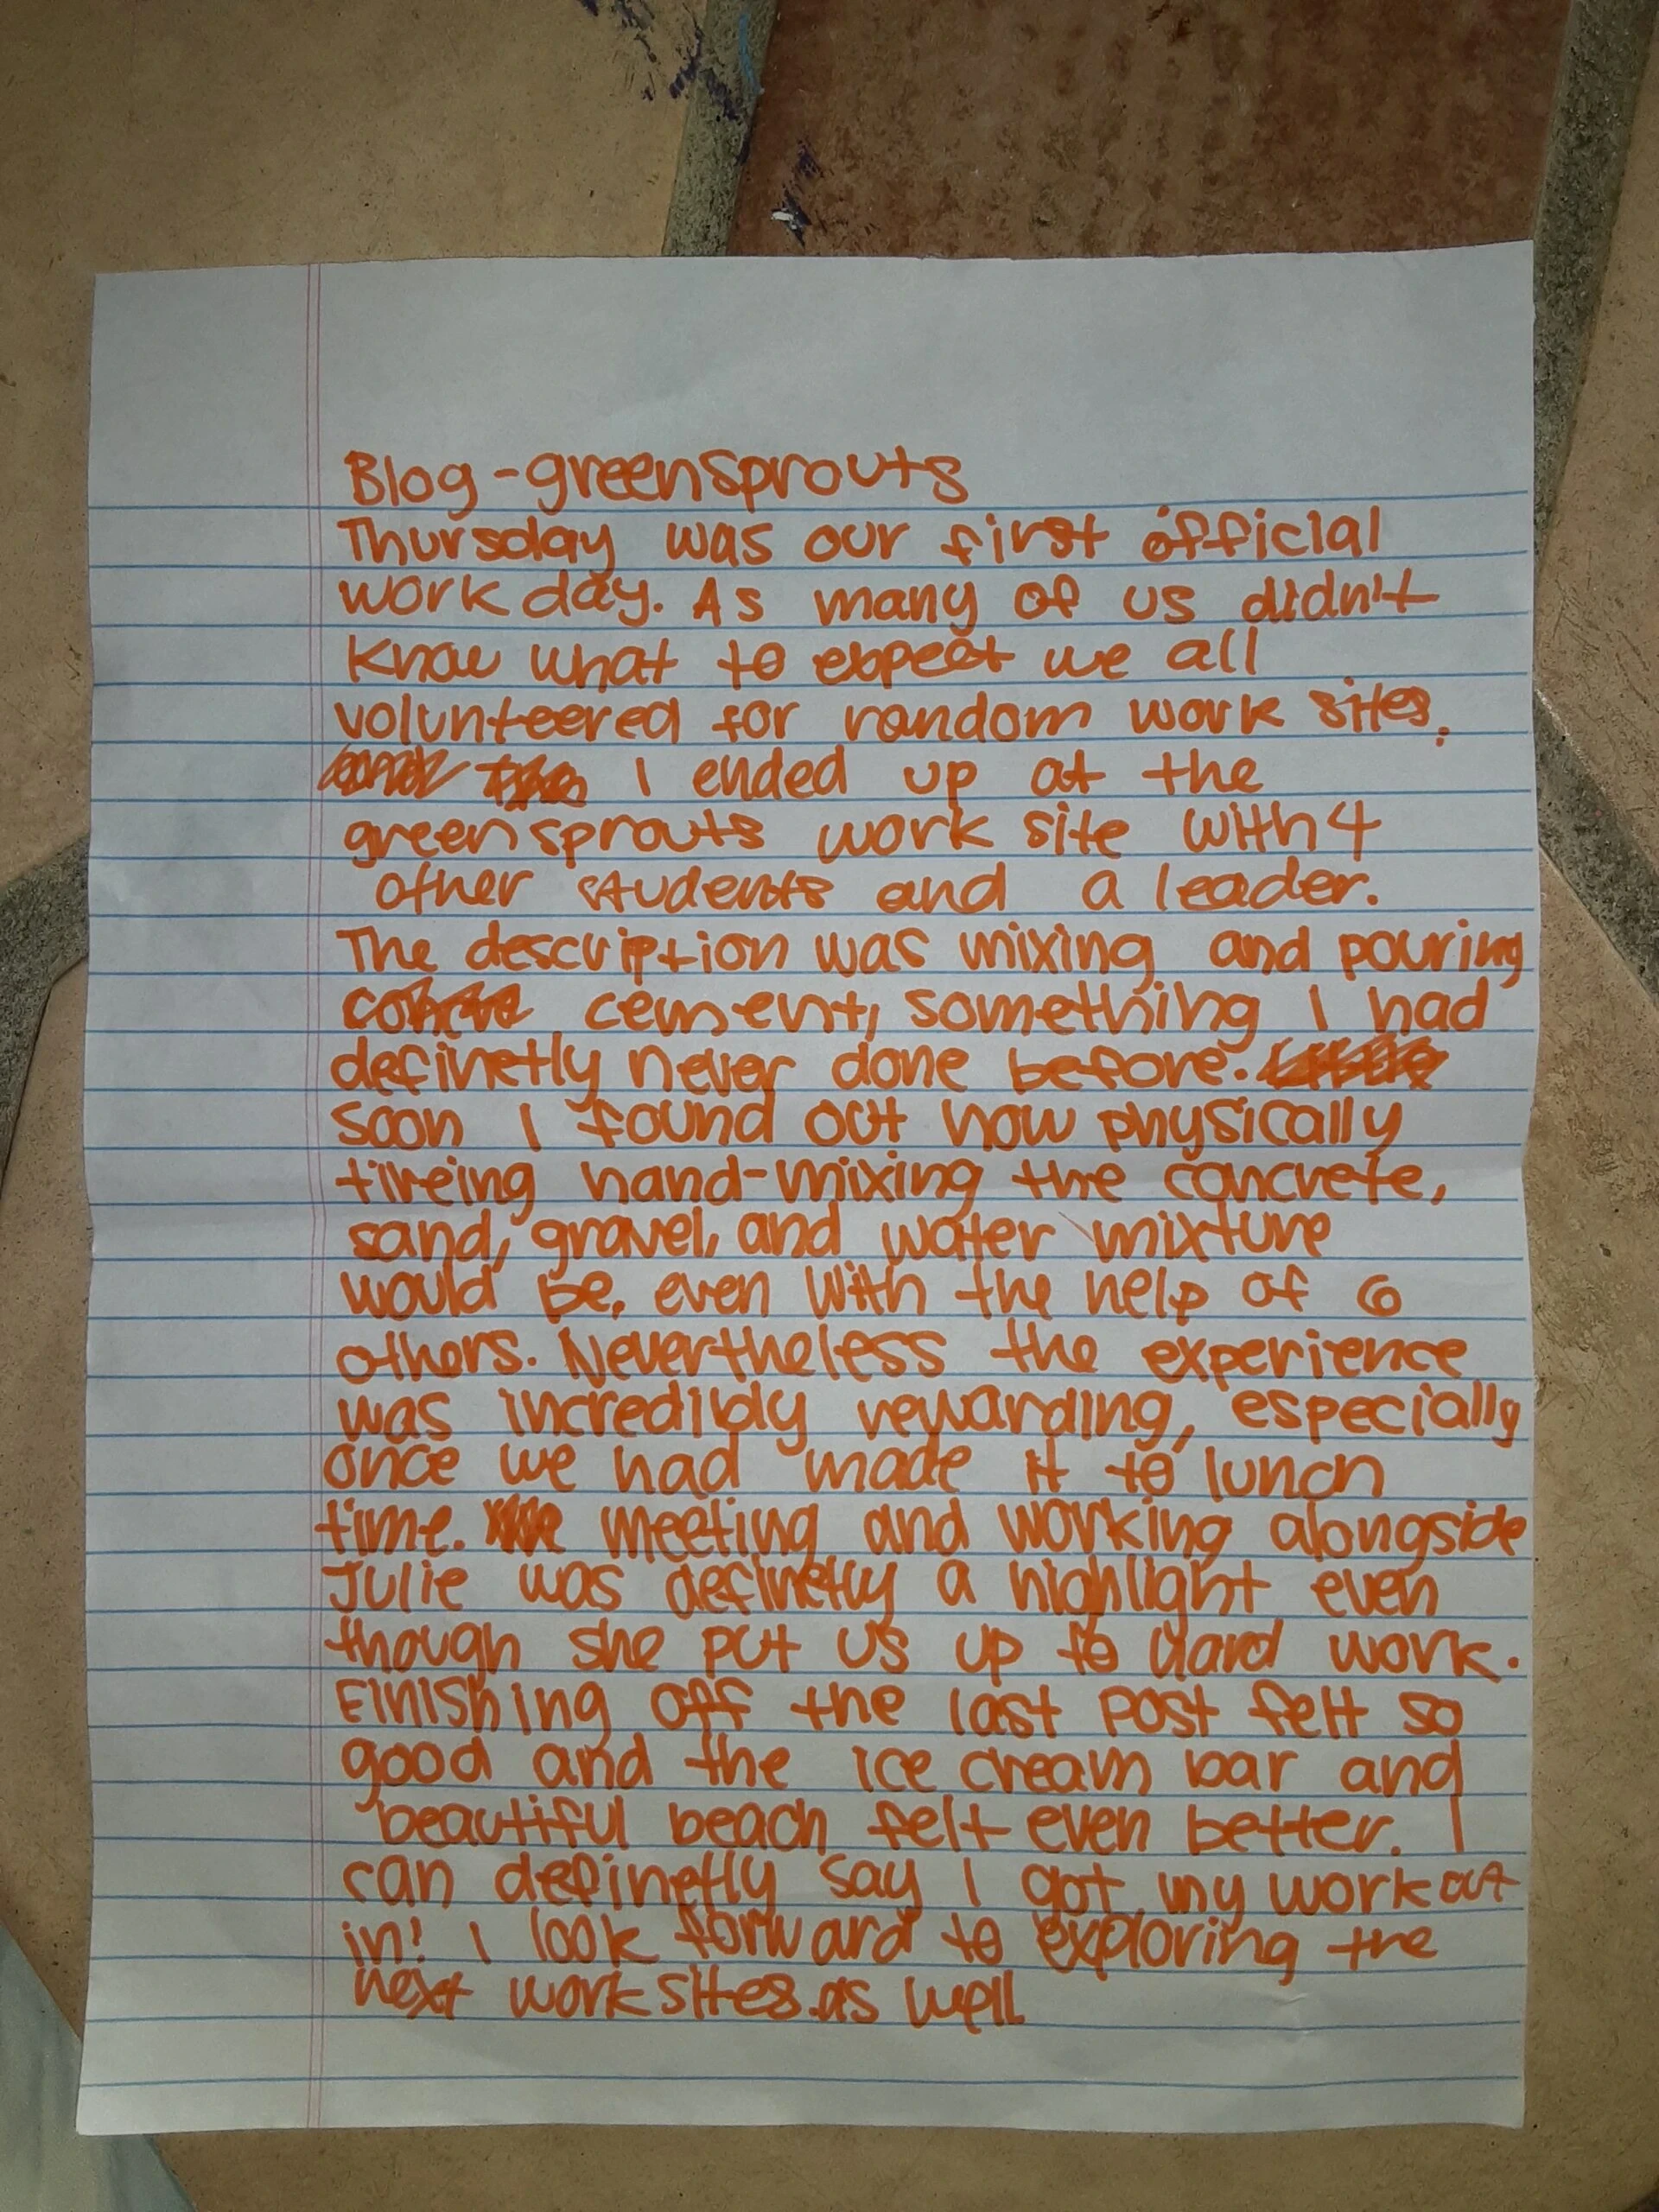 Blog - greensprouts
Thursday was our first official
work day. As many of us didn't
know what to expect we all
volunteered for random work sites.
I ended up at the
green sprouts work site with 4
other students and a leader.
The description was mixing and pouring
cement, something I had
definetly never done before.
soon I found out how physically
tireing hand-mixing the concrete,
sand, gravel, and water mixture
would be, even with the help of 6
others. Nevertheless the experience
was incredibly rewarding, especially
once we had made it to lunch
time. meeting and working alongside
Julie was definetly a highlight even
though she put us up to hard work.
Finishing off the last post felt so
good and the ice cream bar and
beautiful beach felt even better. I
can definetly say I got my work out
in! I look forward to exploring the
next work sites as well.